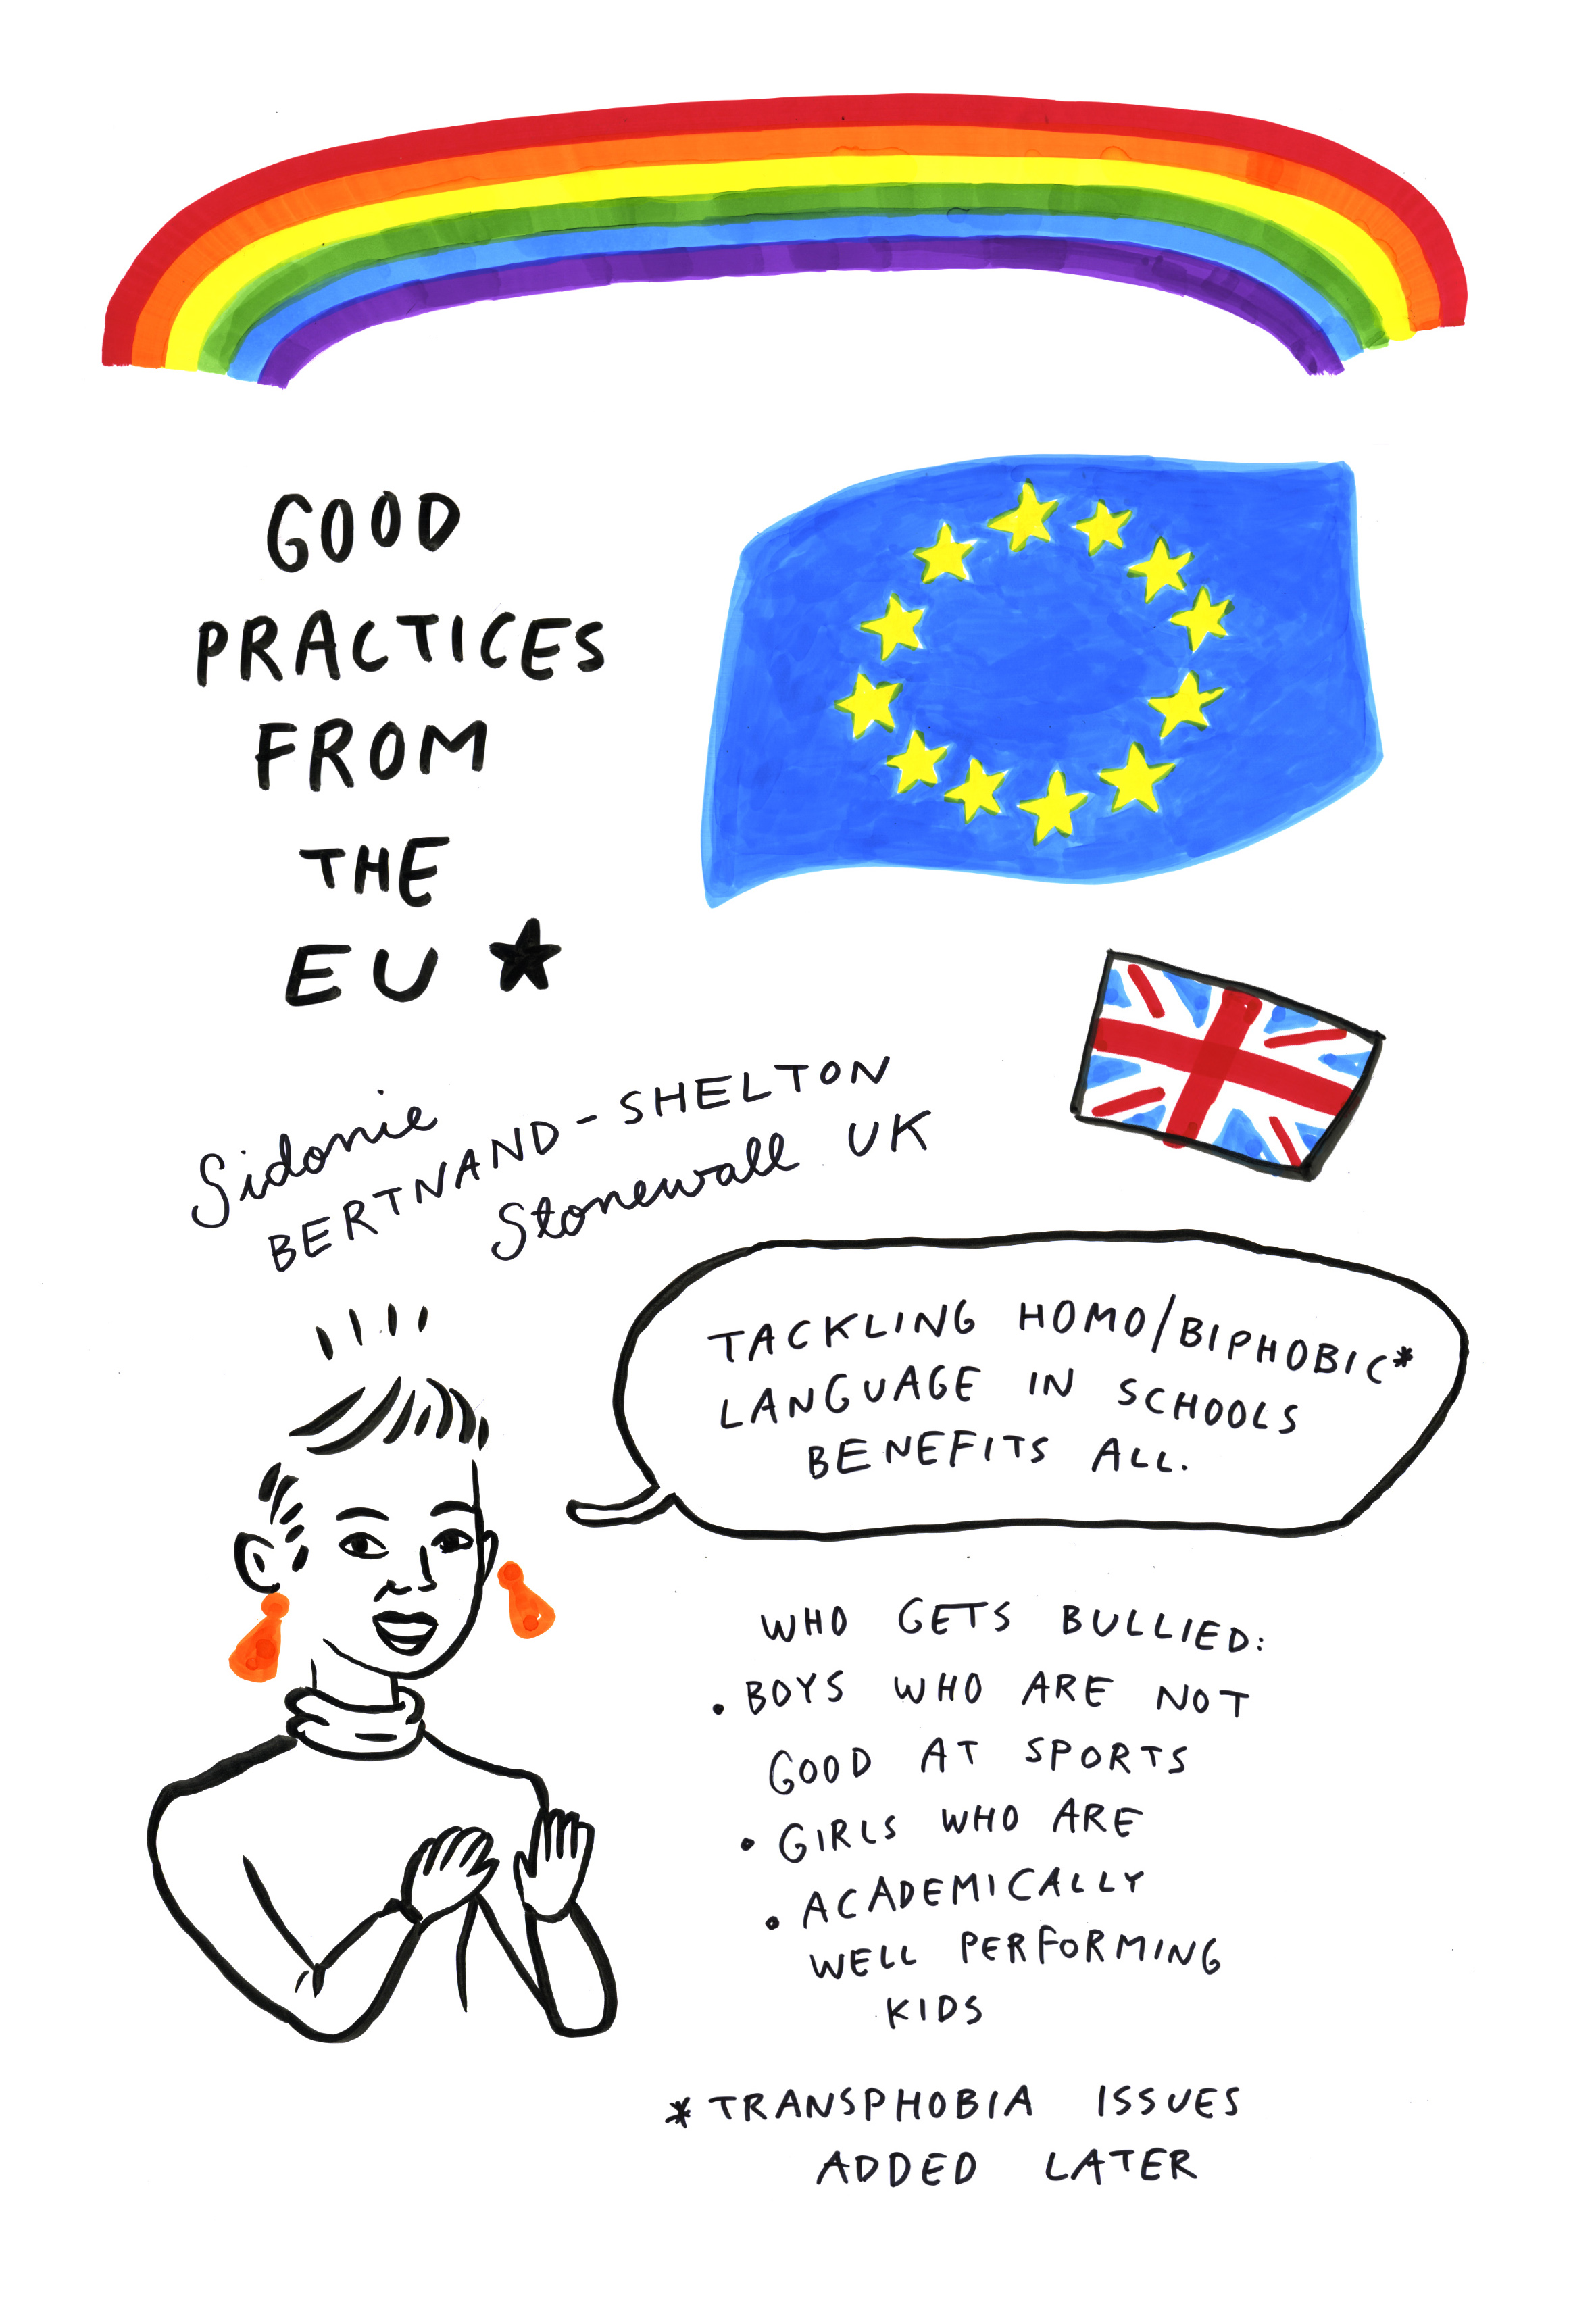 GOOD
PRACTICES
FROM
THE
EU ★
Sidonie
BERTNAND-SHELTON
Stonewall UK
TACKLING HOMO/BIPHOBIC*
LANGUAGE IN SCHOOLS
BENEFITS ALL.
WHO GETS BULLIED:
• BOYS WHO ARE NOT
GOOD AT SPORTS
• GIRLS WHO ARE
• ACADEMICALLY
WELL PERFORMING
KIDS
* TRANSPHOBIA ISSUES
ADDED LATER